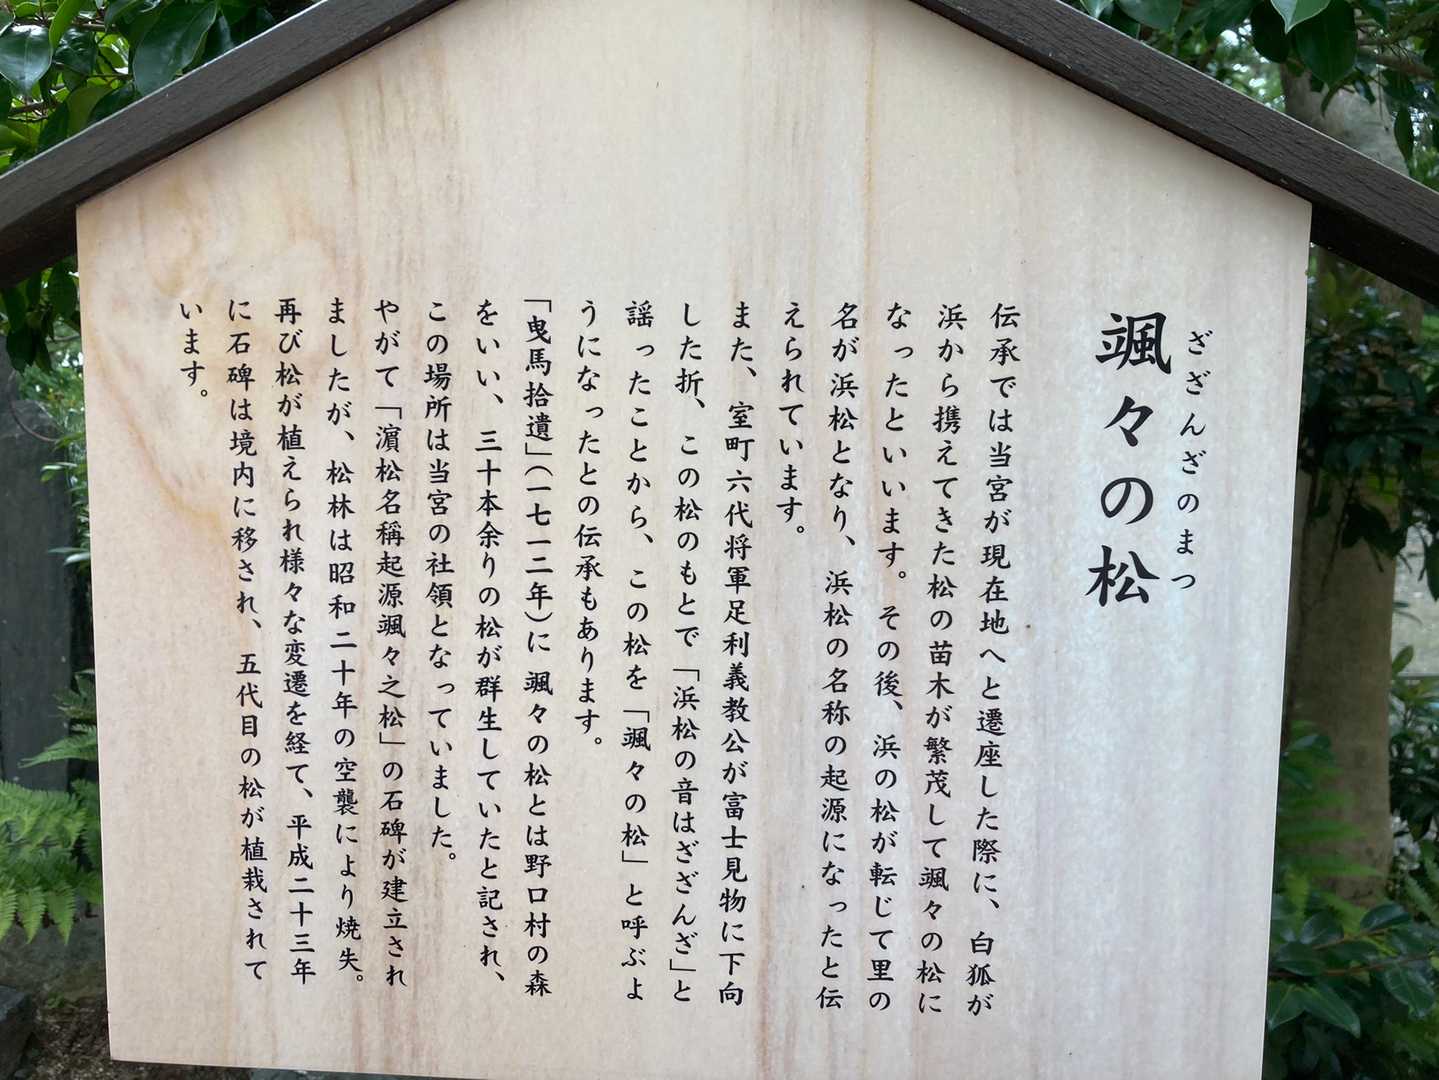 颯々の松
ざざんざのまつ
伝承では当宮が現在地へと遷座した際に、白狐が
浜から携えてきた松の苗木が繁茂して颯々の松に
なったといいます。その後、浜の松が転じて里の
名が浜松となり、浜松の名称の起源になったと伝
えられています。
また、室町六代将軍足利義教公が富士見物に下向
した折、この松のもとで「浜松の音はざざんざ」と
謡ったことから、この松を「颯々の松」と呼ぶよ
うになったとの伝承もあります。
「曳馬拾遺」(一七一二年)に颯々の松とは野口村の森
をいい、三十本余りの松が群生していたと記され、
この場所は当宮の社領となっていました。
やがて「濵松名稱起源颯々之松」の石碑が建立され
ましたが、松林は昭和二十年の空襲により焼失。
再び松が植えられ様々な変遷を経て、平成二十三年
に石碑は境内に移され、五代目の松が植栽されて
います。